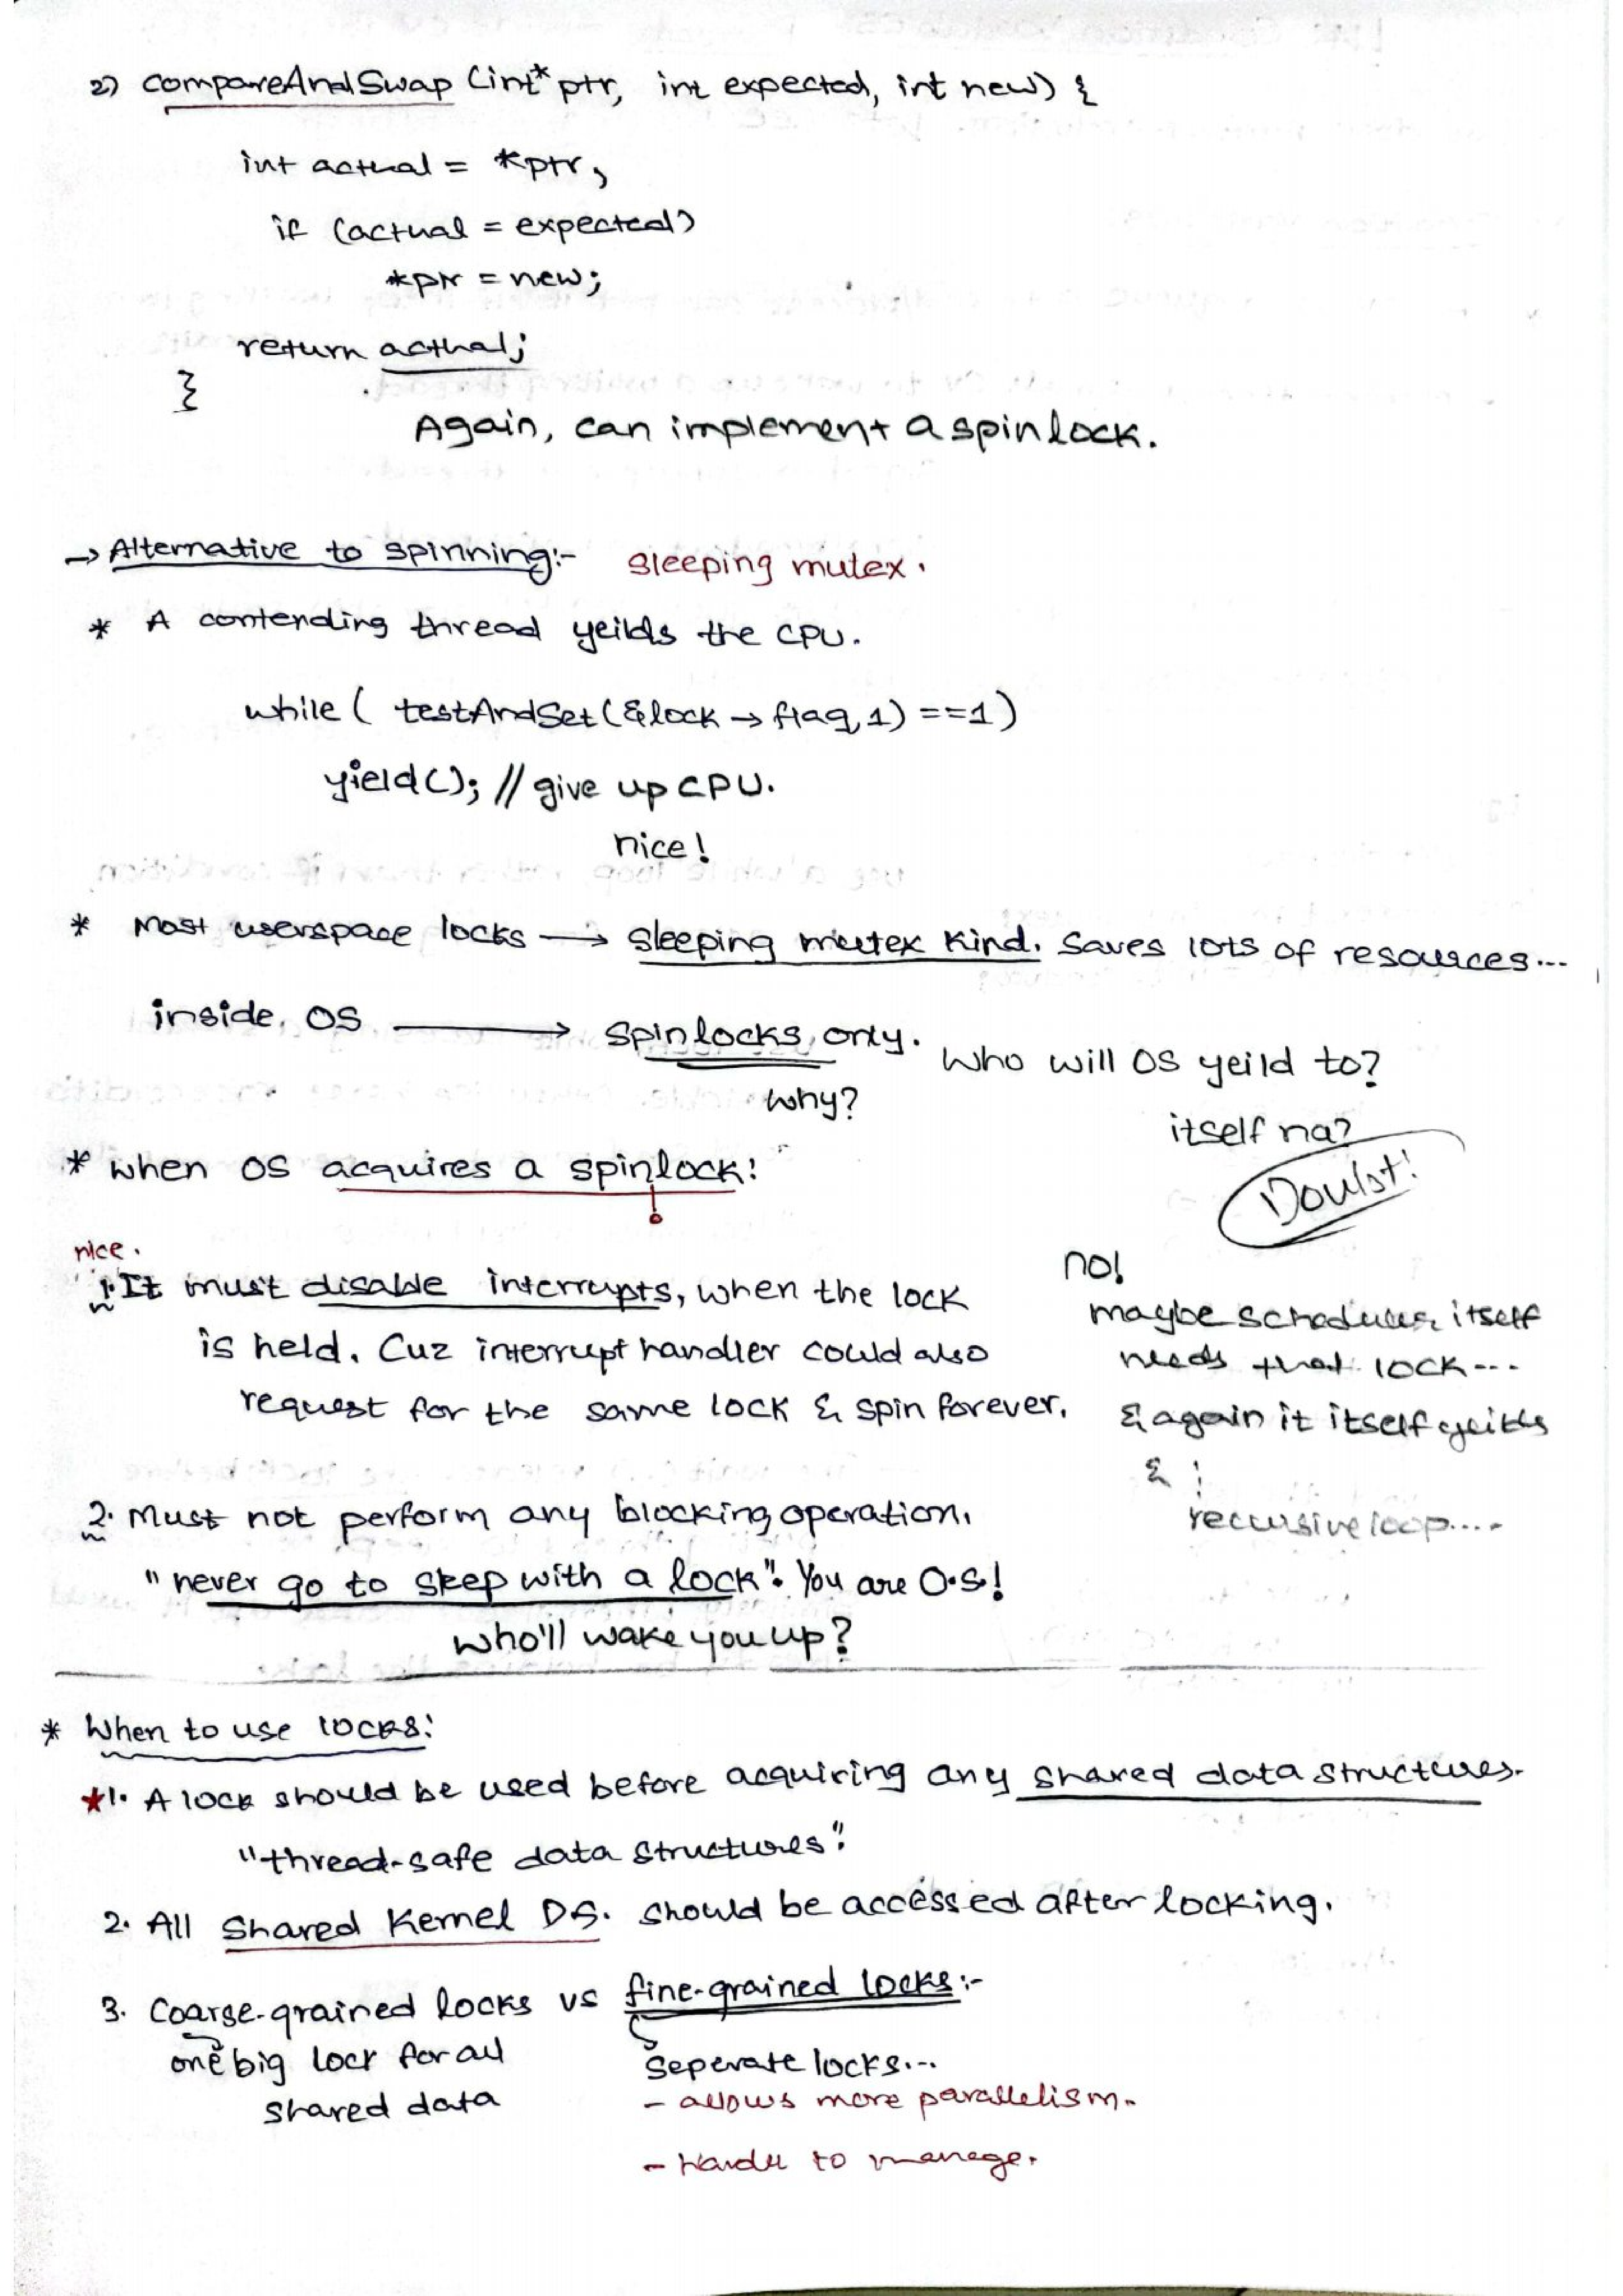 2) compareAndSwap (int* ptr, int expected, int new) {
int actual = *ptr;
if (actual = expected)
*ptr = new;
return actual;
}
Again, can implement a spinlock.
→ Alternative to spinning:- Sleeping mutex.
* A contending thread yeilds the CPU.
while ( testAndSet(&lock → flag, 1) ==1)
yield(); // give up CPU.
nice!
* Most userspace locks → sleeping mutex kind. Saves lots of resources...
inside OS → spinlocks only. Who will OS yeild to?
why?
itself na?
Doubt!
* when OS acquires a spinlock:
nice.
1. It must disable interrupts, when the lock
is held. Cuz interrupt handler could also
request for the same lock & spin forever.
no!
maybe scheduler itself
needs that lock...
& again it itself yeilds
& :
recursive loop....
2. Must not perform any blocking operation.
"never go to sleep with a lock". You are O.S!
who'll wake you up?
* When to use locks:
★1. A lock should be used before acquiring any shared data structures.
"thread-safe data structures".
2. All Shared Kernel DS. should be accessed after locking.
3. Coarse-grained locks vs fine-grained locks:-
one big lock for all
shared data
Seperate locks...
- allows more parallelism.
- Harder to manage.